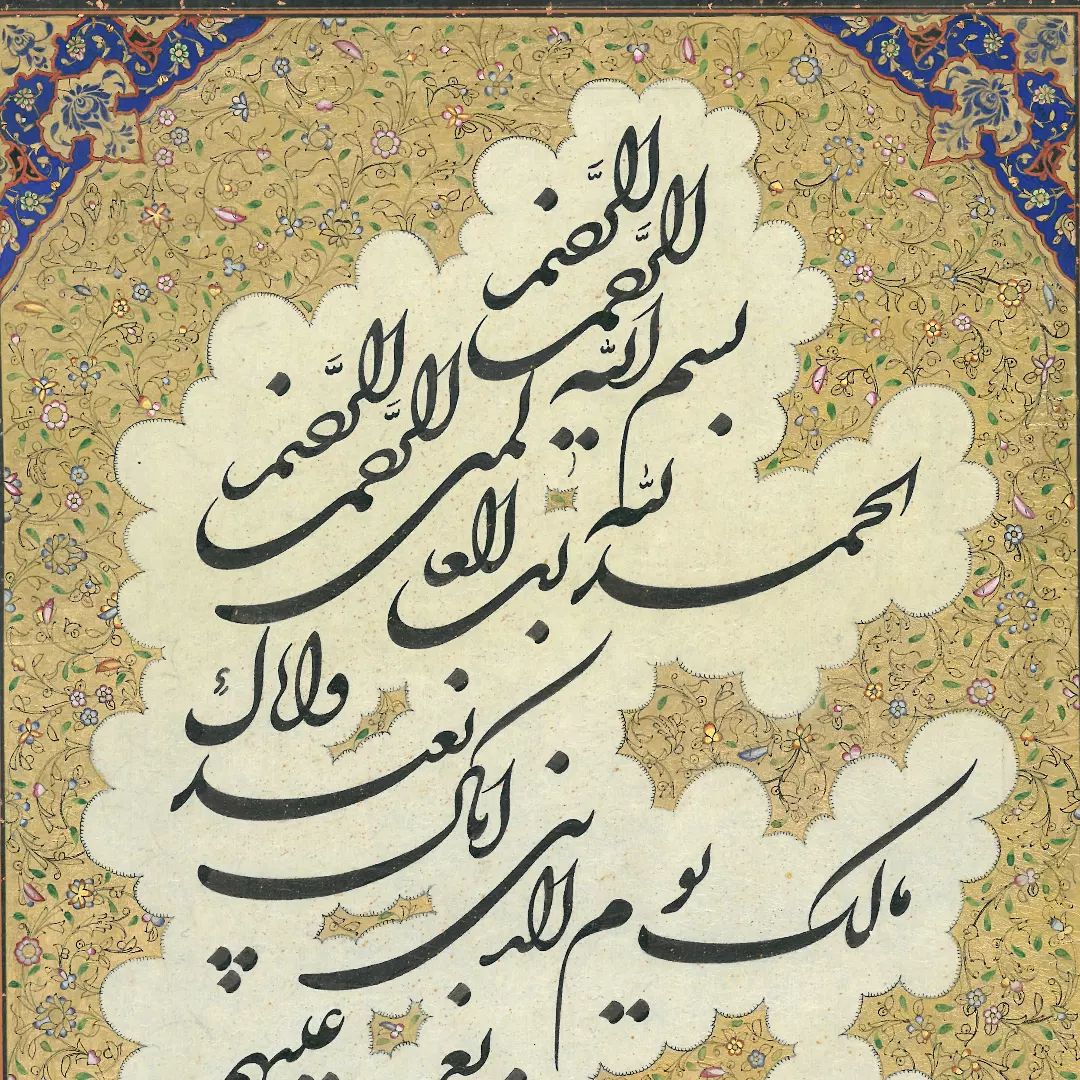 بسم الله الرَّحمن الرَّحيم
الحمد لله رب العالمين الرَّحمن الرَّحيم
مالك يوم الدين اياك نعبد واياك
عليهم